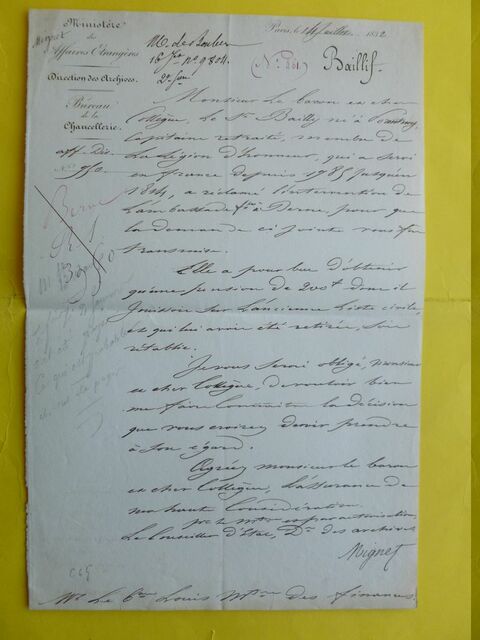 Ministère
des
Affaires Etrangères
Direction des Archives.
Bureau
de la
Chancellerie.
Paris, le 14 Juillet 1832
16 Jin N° 9804.
Baillif.
Monsieur le baron et cher
Collègue, Le Sr. Bailly né à
Capitaine retraité, membre de
La Légion d'honneur, qui a servi
en france depuis 1785 jusqu'en
1814, a réclamé l'intervention de
L'ambassade fse à Berne, pour que
La demande ci jointe vous fut
transmise.
Elle a pour but d'obtenir
qu'une pension de 200f dont il
Jouissoit sur L'ancienne Liste civile,
et qui lui avoit été retirée, soit
rétablie.
Je vous serai obligé, Monsieur
et cher Collègue, de vouloir bien
me faire Connaitre la décision
que vous croirez devoir prendre
à son égard.
Agréez monsieur le baron
et cher Collègue, L'assurance de
ma haute Considération.
pr le Mtre et par autorisation,
Le Conseiller d'Etat, Dr des archives
Mignet
Mr Le Bon Louis Mtre des finances.